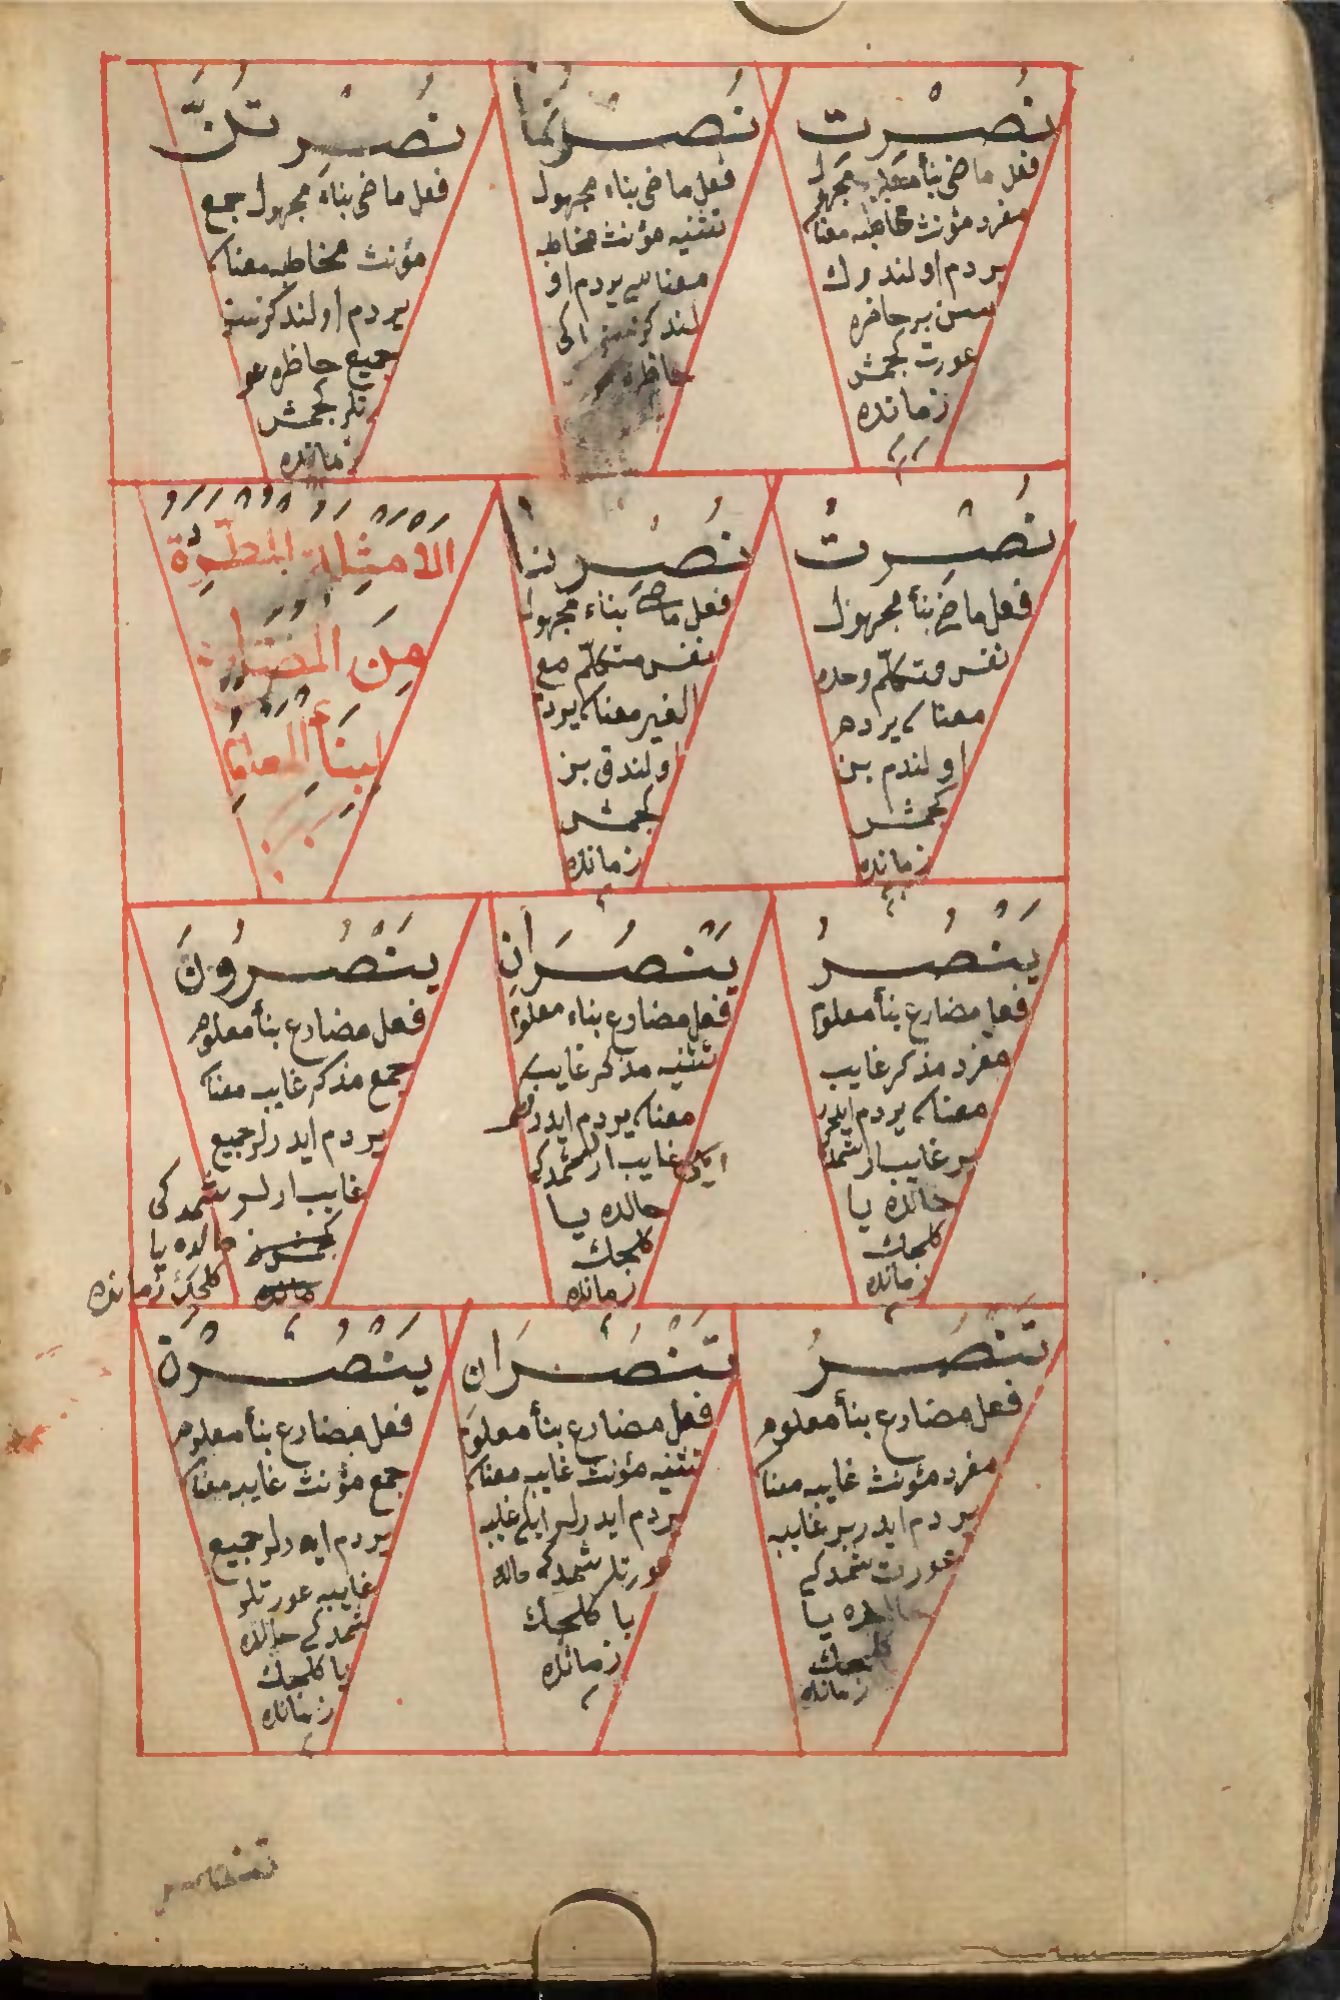 نُصِرْتِ
فعل ماضى بنأ مجهول
مفرد مؤنث مخاطبه معناسى
يردم اولندوك
سن بر حاضره
عورت كجمش
زمانده
نُصِرْتُمَا
فعل ماضى بناء مجهول
تثنيه مؤنث مخاطبه
معناسى يردم او
لندكز سز اكى
حاظره
نُصِرْتُنَّ
فعل ماضى بناء مجهول جمع
مؤنث مخاطبه معناسى
يردم اولندكز سز
جميع حاظره عو
رتلر كجمش
زمانده
نُصِرْتُ
فعل ماضى بنأ مجهول
نفس متكلّم وحده
معناسى يردم
اولندم بن
كجمش
زمانده
نُصِرْنَا
فعل ماضى بناء مجهول
نفس متكلّم مع
الغير معناسى يردم
اولندق بز
كجمش
زمانده
الأمثلة المطّردة
من المضارع
لبنأ المعلوم
يَنْصُرُ
فعل مضارع بنأ معلوم
مفرد مذكر غايب
معناسى يردم ايدر
بر غايب ار شمدكى
حالده يا
كلجك
زمانده
يَنْصُرَانِ
فعل مضارع بناء معلوم
تثنيه مذكر غايب
معناسى يردم ايدرلر
ايكى غايب ار شمدكى
حالده يا
كلجك
زمانده
يَنْصُرُونَ
فعل مضارع بنأ معلوم
جمع مذكر غايب معناسى
يردم ايدرلر جميع
غايب ارلر شمدكى
حالده يا
كلجك زمانده
تَنْصُرُ
فعل مضارع بنأ معلوم
مفرد مؤنث غايبه معناسى
يردم ايدر بر غايبه
عورت شمدكى
حالده يا
كلجك
زمانده
تَنْصُرَانِ
فعل مضارع بنأ معلوم
تثنيه مؤنث غايبه معناسى
يردم ايدرلر ايكى غايبه
عورتلر شمدكى حالده
يا كلجك
زمانده
يَنْصُرْنَ
فعل مضارع بنأ معلوم
جمع مؤنث غايبه معناسى
يردم ايدرلر جميع
غايبه عورتلر
شمدكى حالده
يا كلجك
زمانده
تنصر